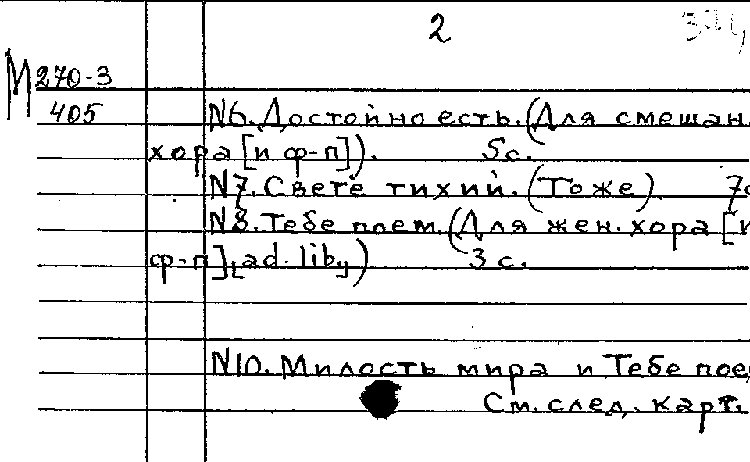 2
М 270-3
405
N6. Достойно есть. (Для смешан.
хора [и ф-п]). 5с.
N7. Свете тихий. (Тоже). 7с
N8. Тебе поем. (Для жен. хора [и
ф-п], [ad. lib.,]) 3с.
N10. Милость мира и Тебе пое
См. след. карт.